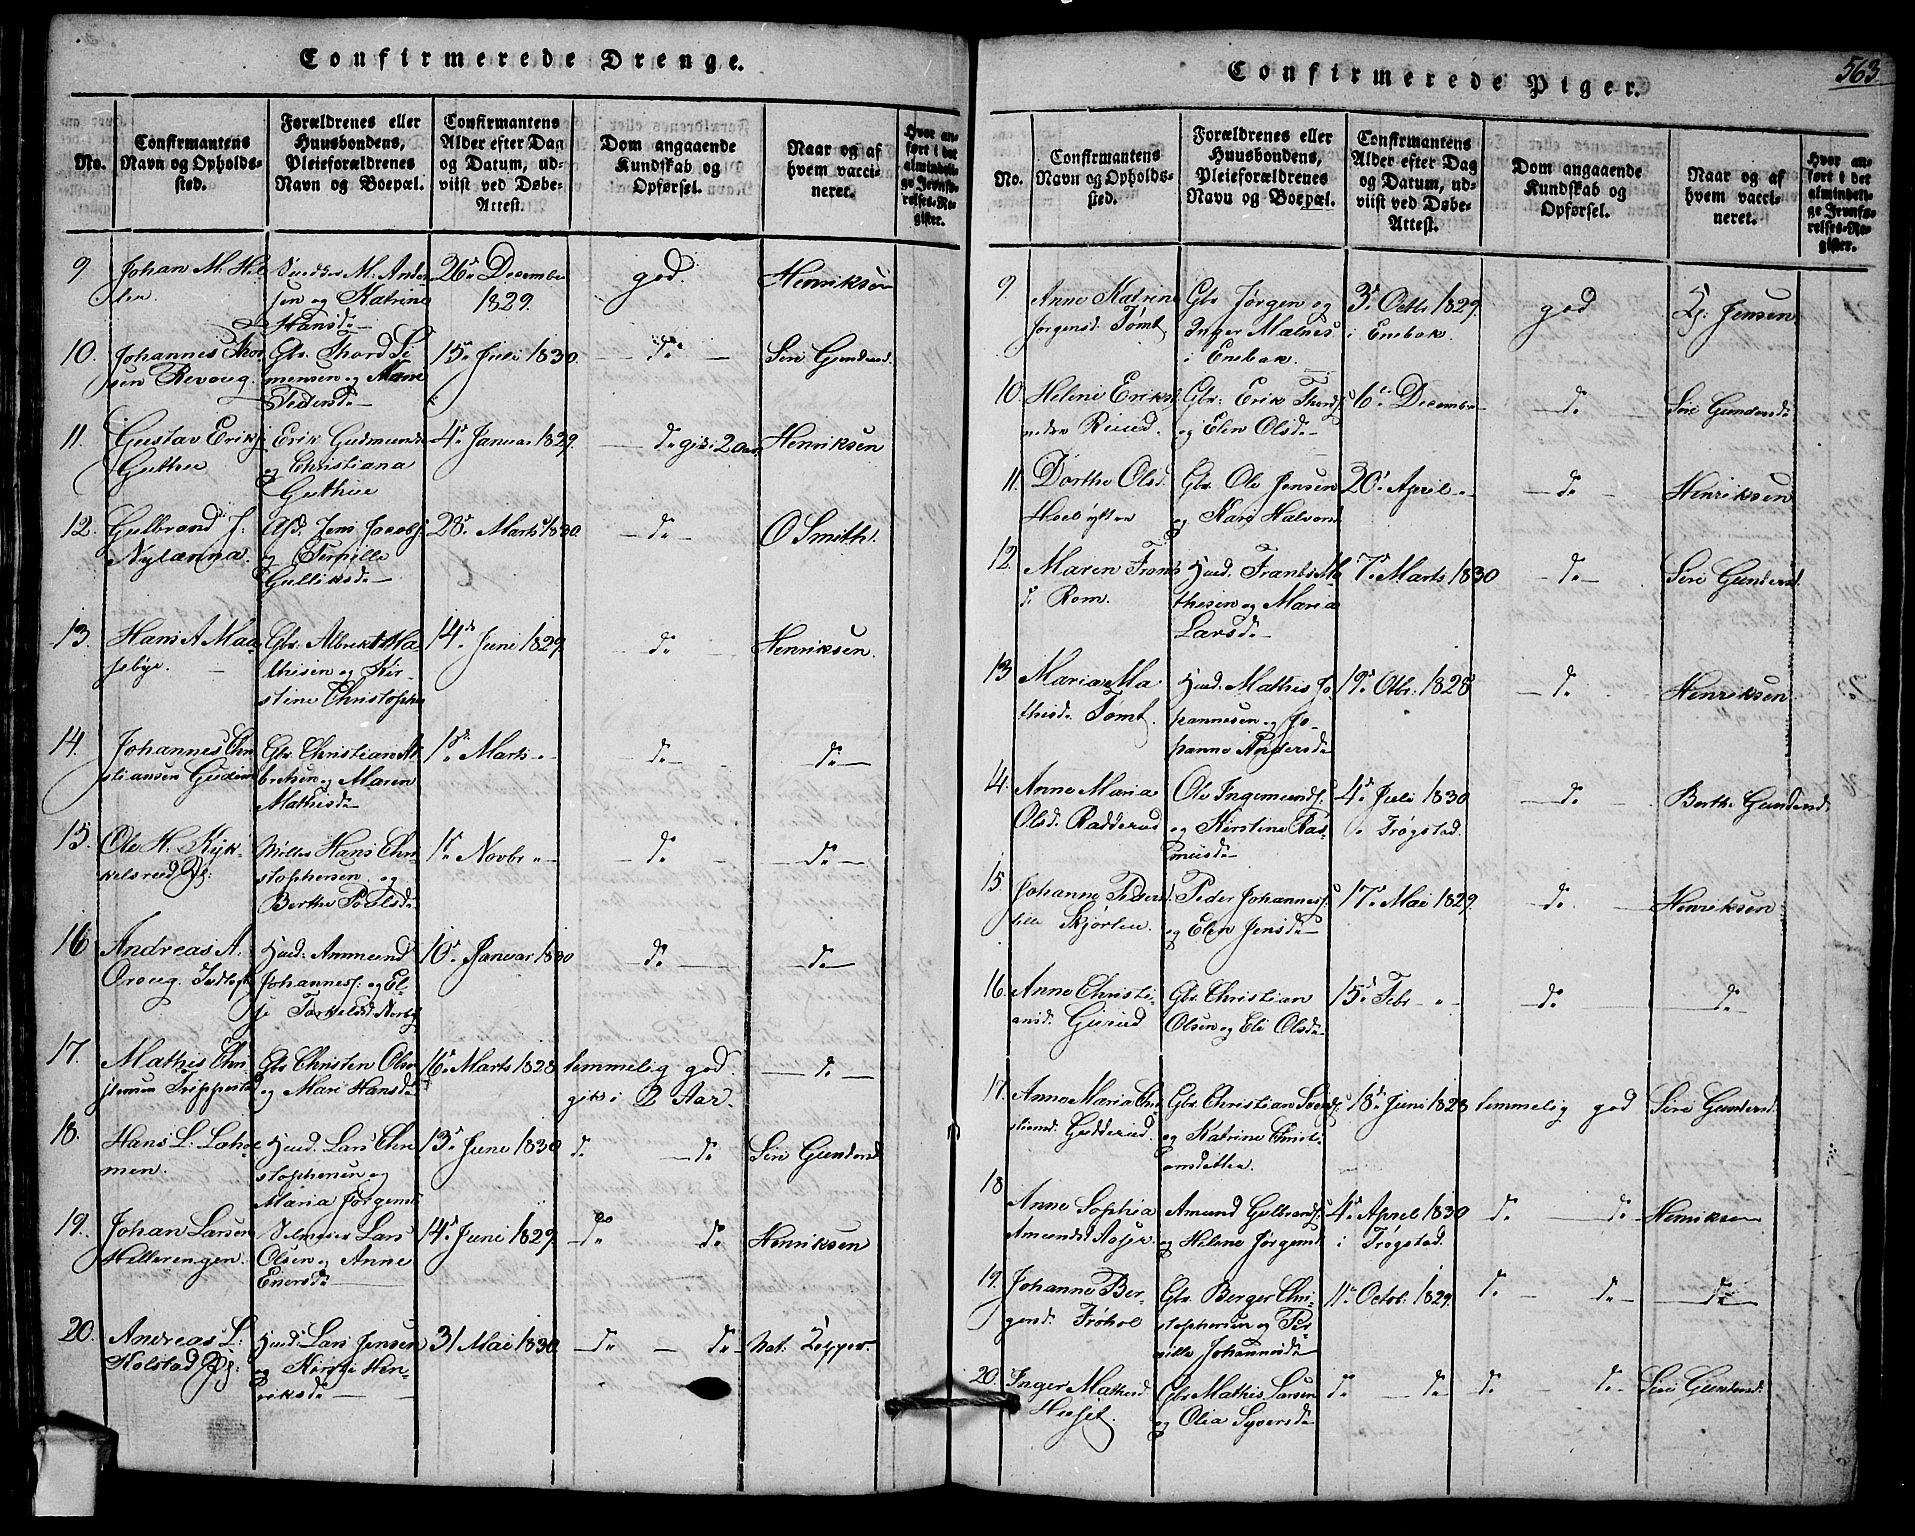 Confirmerede Drenge.
No.
Confirmantens
Navn og Opholds-
sted.
Forældrenes eller
Huusbondens,
Pleieforældrenes
Navn og Boepæl.
Confirmantens
Alder efter Dag
og Datum, ud-
viist ved Døbe-
Attest.
Dom angaaende
Kundskab og
Opførsel.
Naar og af
hvem vacci-
neret.
Hvor an-
ført i det
almindeli-
ge Jevnfø-
relses-Re-
gister.
9
Johan M.
Anders
sen og Katrine
Hansd
26 December
1829.
god.
Henriksen
10.
Johannes Thor
sen Revoug.
Gbr. Thord Si
mensen og Marie
Pedersd
15 Juli 1830.
d
Siri Gunderud
11.
Gustav Eriks
Guthu
Erik Gudmunds
og Christiana
Guthue
4 Januar 1829.
d gik i 2 Aar
Henriksen
12.
Gulbrand J:
Nylænna.
Jens Jacobs
og Pernille
Gulliksd
28 Marts 1830.
d
O Smith.
13.
Hans A Maa
sebye.
Gbr. Albrekt Ma
thisen og Kir-
stine Christophs
14 Juni 1829.
d
Henriksen.
14.
Johannes Chri
stiansen Gudim
Gbr. Christian Al
bretsen og Maren
Mathisd
1 Marts "
d
d
15.
Ole H. Kyk-
kelsrud
Møller Hans Chri
stophersen og
Berthe Poulsd
1 Novbr "
d
d
16
Andreas A.
Oroug.
Huusd. Ammund
Johanness. og El-
se Torkelsd
10 Januar 1830
d
d
17.
Mathis Chri
stensen Trippestad
Gbr Christen Olsen
og Mari Hansd
16 Marts 1828
temmelig god.
gik i 2 Aar.
d
18.
Hans L. Løke
men.
Huusd. Lars Chri
stophersen og
Maria Jørgensd
13 June 1830
d d
Siri Gunderud
19.
Johan Larsen
Hellerengen.
Selveier Lars
Olsen og Anne
Enersd
14 Juni 1829.
d d
Henriksen
20.
Andreas L:
Kolstad
Huusd: Lars Jensen
og Kirsti Hen-
riksd
31 Mai 1830.
d d
Nat: Kopper.
563
Confirmerede Piger.
No.
Confirmantens
Navn og Opholds-
sted.
Forældrenes eller
Huusbondens,
Pleieforældrenes
Navn og Boepæl.
Confirmantens
Alder efter Dag
og Datum, ud-
viist ved Døbe-
Attest.
Dom angaaende
Kundskab og
Opførsel.
Naar og af
hvem vacci-
neret.
Hvor an-
ført i det
almindeli-
ge Jevnfø-
relses-Re-
gister.
9
Anne Katrine
Jørgensd. Tømt
Gbr Jørgen og
Inger Malnes
i Enebak.
3 Octbr 1829.
i Enebak.
god
Jensen
10.
Helene Eriks
Ruud.
Gbr: Erik Thords
og Elen Olsd
6 December
d
Siri Gunderud
11.
Dorthe Olsd.
Gbr. Ole Jensen
og Kari Halvorsd
20 April "
d
Henriksen
12.
Maren Frants
d Rom.
Huusd. Frants Ma
thisen og Maria
Larsd
7 Marts 1830
d
Siri Gunderud
13
Maria Ma
thisd. Tømt.
Huusd. Mathis Jo
hannesen og Jo-
hanne Andersd
19 Otbr. 1828
d
Henriksen
14.
Anne Maria
Olsd. Radderud
Ole Ingemunds.
og Kirstine Ras
musd
4 Juli 1830
i Trøgstad.
d
Berthe Gunderud
15
Johanne Pedersd.
Skjørten.
Peder Johanness.
og Elen Jensd
17 Mai 1829.
d
Henriksen
16.
Anne Christi-
ansd.
Gbr. Christian
Olsen og Eli Olsd
15 Febr "
d
d
17.
Anne Maria Chri
stiansd. Gudderud.
Gbr. Christian Svends.
og Katrine Christi
ansdatter.
18 Juni 1828
temmelig god
Siri Gunderud
18
Anne Sophia
Amundsd
Amund Gulbrands.
og Helene Jørgensd
4 April 1830
i Trøgstad.
d d
Henriksen
19
Johanne Ber-
gersd. Frøhol
Gbr. Berger Chri-
stophersen og Per-
nille Johannesd
11 Octbr. 1829.
d d
d
20.
Inger Mathisd
Huset.
Gbr Mathis Larsen
og Olia Syversd
d d
d d
Siri Gunderud.